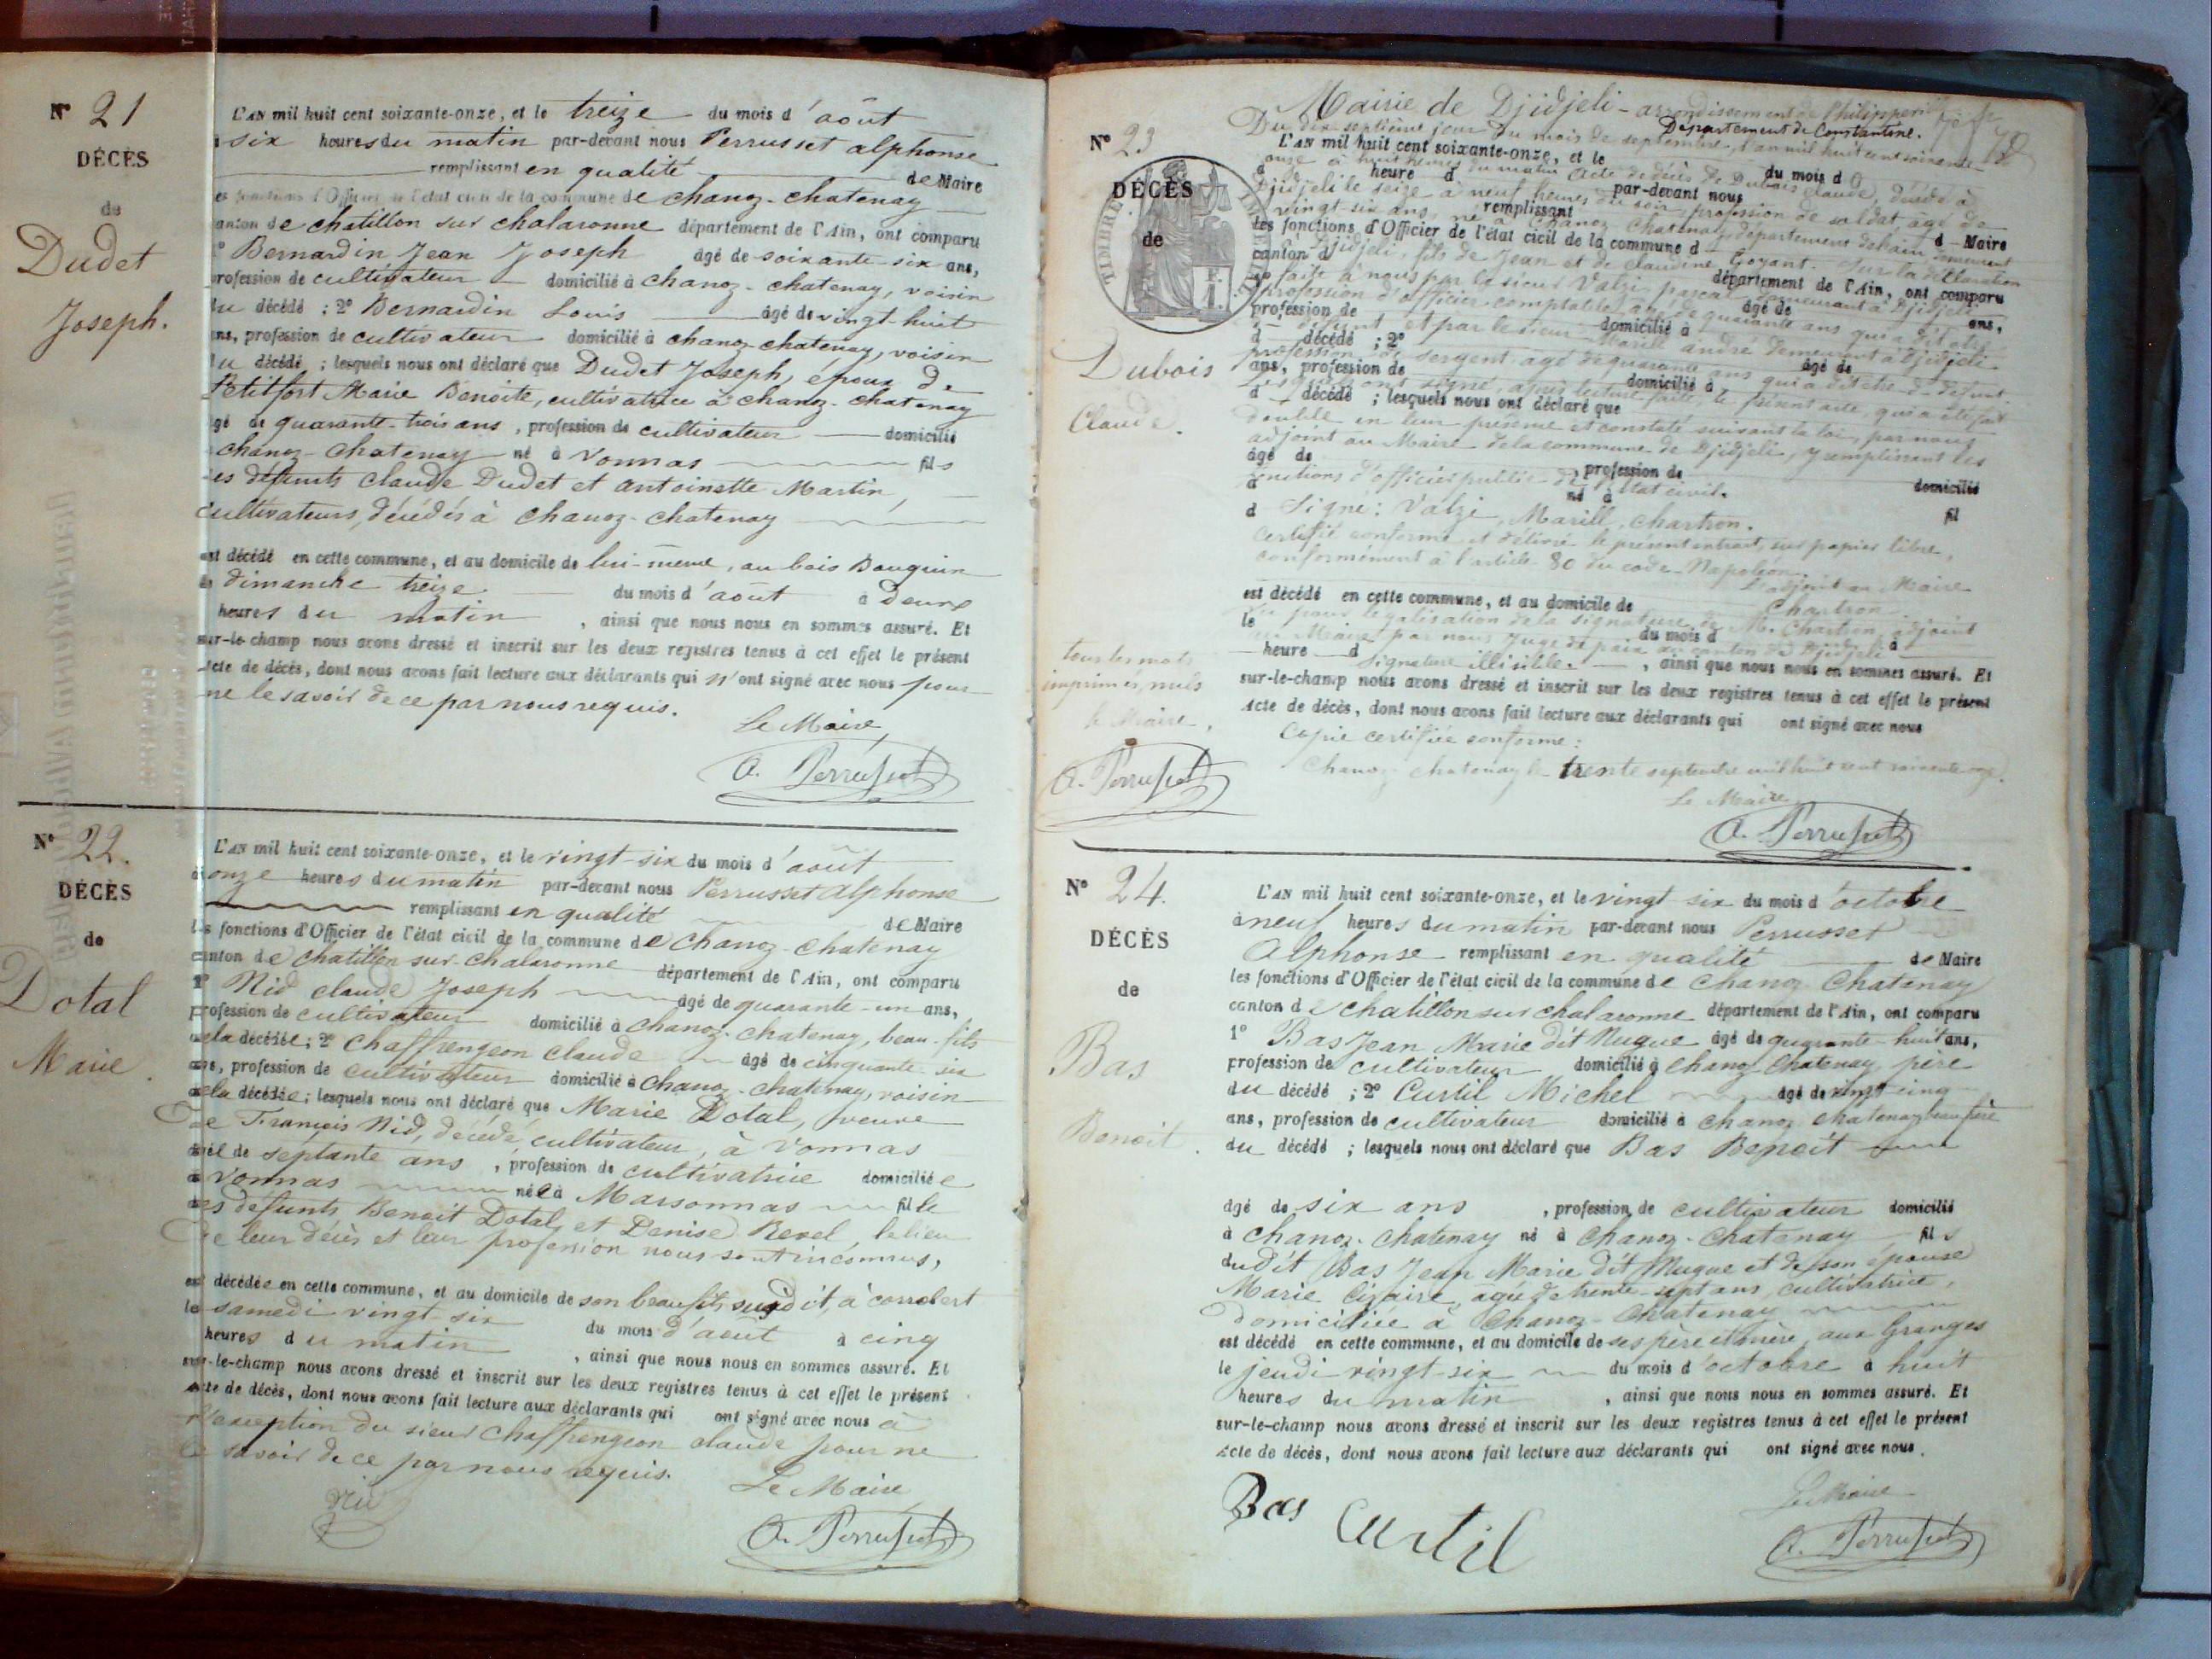 Nº 21
DÉCÈS
de
Dudet
Joseph.
L'AN mil huit cent soixante-onze, et le treize du mois d'août
à six heures du matin par-devant nous Perrusset alphonse
remplissant en qualité de Maire
les fonctions d'Officier de l'état civil de la commune de chanoz-chatenay
canton de chatillon sur chalaronne département de l'Ain, ont comparu
1º Bernardin Jean Joseph âgé de soixante six ans,
profession de cultivateur domicilié à chanoz-chatenay, voisin
du décédé ; 2º Bernardin Louis âgé de vingt-huit
ans, profession de cultivateur domicilié à chanoz-chatenay, voisin
du décédé ; lesquels nous ont déclaré que Dudet Joseph, époux de
Petitfort Marie Benoite, cultivatrice à chanoz-chatenay
âgé de quarante-trois ans, profession de cultivateur domicilié
à chanoz-chatenay né à Vonnas fils
des défunts Claude Dudet et Antoinette Martin,
cultivateurs, décédés à chanoz-chatenay
est décédé en cette commune, et au domicile de lui-même, au bois Bouquin
le dimanche treize du mois d'août à deux
heures du matin, ainsi que nous nous en sommes assuré. Et
sur-le-champ nous avons dressé et inscrit sur les deux registres tenus à cet effet le présent
Acte de décès, dont nous avons fait lecture aux déclarants qui n'ont signé avec nous pour
ne le savoir de ce par nous requis.
Le Maire,
A. Perrusset
Nº 22.
DÉCÈS
de
Dotal
Marie.
L'AN mil huit cent soixante-onze, et le vingt-six du mois d'août
à onze heures du matin par-devant nous Perrusset Alphonse
remplissant en qualité de Maire
les fonctions d'Officier de l'état civil de la commune de Chanoz-chatenay
canton de chatillon sur-chalaronne département de l'Ain, ont comparu
1º Nid claude Joseph âgé de quarante-un ans,
profession de cultivateur domicilié à chanoz-chatenay, beau-fils
de la décédée ; 2º Chaffrengeon claude âgé de cinquante-six
ans, profession de cultivateur domicilié à chanoz-chatenay, voisin
de la décédée ; lesquels nous ont déclaré que Marie Dotal, veuve
de François Nid, décédé cultivateur, à Vonnas
âgée de septante ans, profession de cultivatrice domiciliée
à Vonnas née à Marsonnas fille
des défunts Benoit Dotal, et Denise Revel, le lieu
de leur décès et leur profession nous sont inconnus,
est décédée en cette commune, et au domicile de son beaufils susdit, à corrobert
le samedi vingt-six du mois d'août à cinq
heures du matin, ainsi que nous nous en sommes assuré. Et
sur-le-champ nous avons dressé et inscrit sur les deux registres tenus à cet effet le présent
Acte de décès, dont nous avons fait lecture aux déclarants qui ont signé avec nous à
l'exception du sieur Chaffrengeon claude pour ne
le savoir de ce par nous requis.
Nid
Le Maire
A. Perrusset
Nº 23
DÉCÈS
de
Dubois
Claude.
tous les mots
imprimés, nuls
le Maire,
A. Perrusset
Mairie de Djidjeli - arrondissement de Philippeville
Département de Constantine.
Du dix-septième jour du mois de septembre, l'an mil huit cent soixante
L'AN mil huit cent soixante-onze, et le du mois d
onze à huit heures du matin Acte de décès de Dubois Claude, décédé à
heure d par-devant nous
Djidjeli le seize à neuf heures du soir profession de soldat âgé de
remplissant d Maire
vingt-six ans, né à Chanoz Chatenay département de l'ain demeurant
les fonctions d'Officier de l'état civil de la commune d
à Djidjeli, fils de Jean et de Claudine Goyant. Sur la déclaration
canton d département de l'Ain, ont comparu
faite à nous par le sieur Valzi pascal demeurant à Djidjeli
1º âgé de ans,
profession d'officier comptable, âgé de quarante ans qui a dit être
profession de domicilié à
défunt et par le sieur Marill andré demeurant à Djidjeli
d décédé ; 2º âgé de
profession de sergent âgé de quarante ans qui a dit être d défunt.
ans, profession de domicilié à
Lesquels ont signé, après lecture faite, le présent acte, qui a été fait
d décédé ; lesquels nous ont déclaré que
double en leur présence et constaté suivant la loi, par nous
adjoint au Maire de la commune de Djidjeli, y remplissant les
âgé de profession de domicilié
fonctions d'officier public de l'état civil.
à né à fil
d
Signé : Valzi, Marill, Chartron.
Certifié conforme et délivré le présent extrait, sur papier libre,
conformément à l'article 80 du code Napoléon.
L'adjoint au Maire
est décédé en cette commune, et au domicile de
Chartron
Vu pour légalisation de la signature de M. Chartron adjoint
le du mois d à
au Maire, par nous Juge de paix du canton de Djidjeli
heure d , ainsi que nous nous en sommes assuré. Et
Signature illisible.
sur-le-champ nous avons dressé et inscrit sur les deux registres tenus à cet effet le présent
Acte de décès, dont nous avons fait lecture aux déclarants qui ont signé avec nous
Copie certifiée conforme :
Chanoz-chatenay le trente septembre mil huit cent soixante onze.
Le Maire
A. Perrusset
Nº 24.
DÉCÈS
de
Bas
Benoit.
L'AN mil huit cent soixante-onze, et le vingt six du mois d'octobre
à neuf heures du matin par-devant nous Perrusset
Alphonse remplissant en qualité de Maire
les fonctions d'Officier de l'état civil de la commune de Chanoz Chatenay
canton de chatillon sur chalaronne département de l'Ain, ont comparu
1º Bas Jean Marie dit Mugue âgé de quarante-huit ans,
profession de cultivateur domicilié à Chanoz Chatenay père
du décédé ; 2º Curtil Michel âgé de vingt cinq
ans, profession de cultivateur domicilié à Chanoz Chatenay beau frère
du décédé ; lesquels nous ont déclaré que Bas Benoit
âgé de six ans, profession de cultivateur domicilié
à Chanoz-Chatenay né à Chanoz-Chatenay fils
dudit Bas Jean Marie dit Mugue et de son épouse
Marie Cizaire, agée de trente-sept ans, cultivatrice,
domiciliée à Chanoz-Chatenay
est décédé en cette commune, et au domicile de ses père et mère, aux Granges
le jeudi vingt-six du mois d'octobre à huit
heures du matin, ainsi que nous nous en sommes assuré. Et
sur-le-champ nous avons dressé et inscrit sur les deux registres tenus à cet effet le présent
Acte de décès, dont nous avons fait lecture aux déclarants qui ont signé avec nous.
Bas Curtil
Le Maire
A. Perrusset